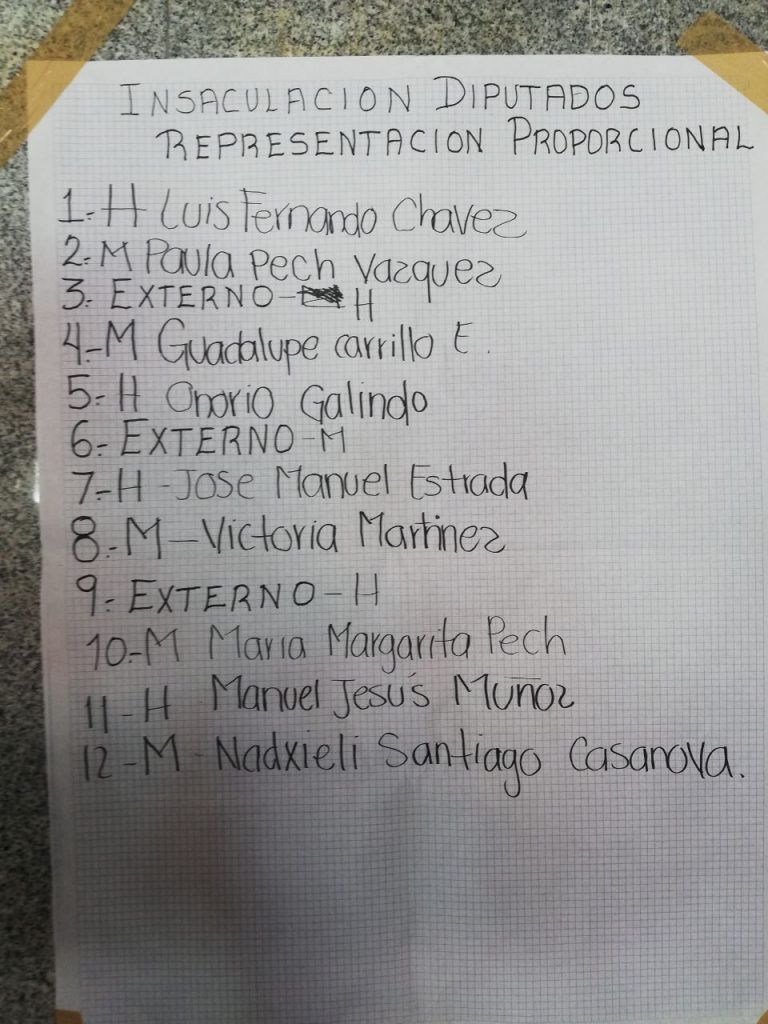 INSACULACION DIPUTADOS
REPRESENTACION PROPORCIONAL
1.- H Luis Fernando Chavez
2.- M Paula Pech Vazquez
3.- EXTERNO - H
4.- M Guadalupe carrillo E.
5.- H Onorio Galindo
6.- EXTERNO - M
7.- H - Jose Manuel Estrada
8.- M - Victoria Martinez
9.- EXTERNO - H
10.- M Maria Margarita Pech
11 - H Manuel Jesús Muñoz
12 - M - Nadxieli Santiago Casanova.